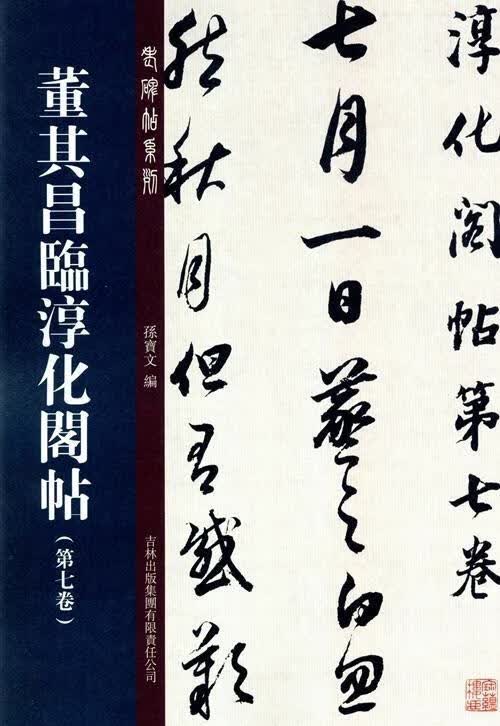 淳化阁帖第七卷
七月一日羲之白忽
然秋月但有感歎
老碑帖系列
孫寶文 編
吉林出版集團有限責任公司
董其昌臨淳化閣帖
（第七卷）